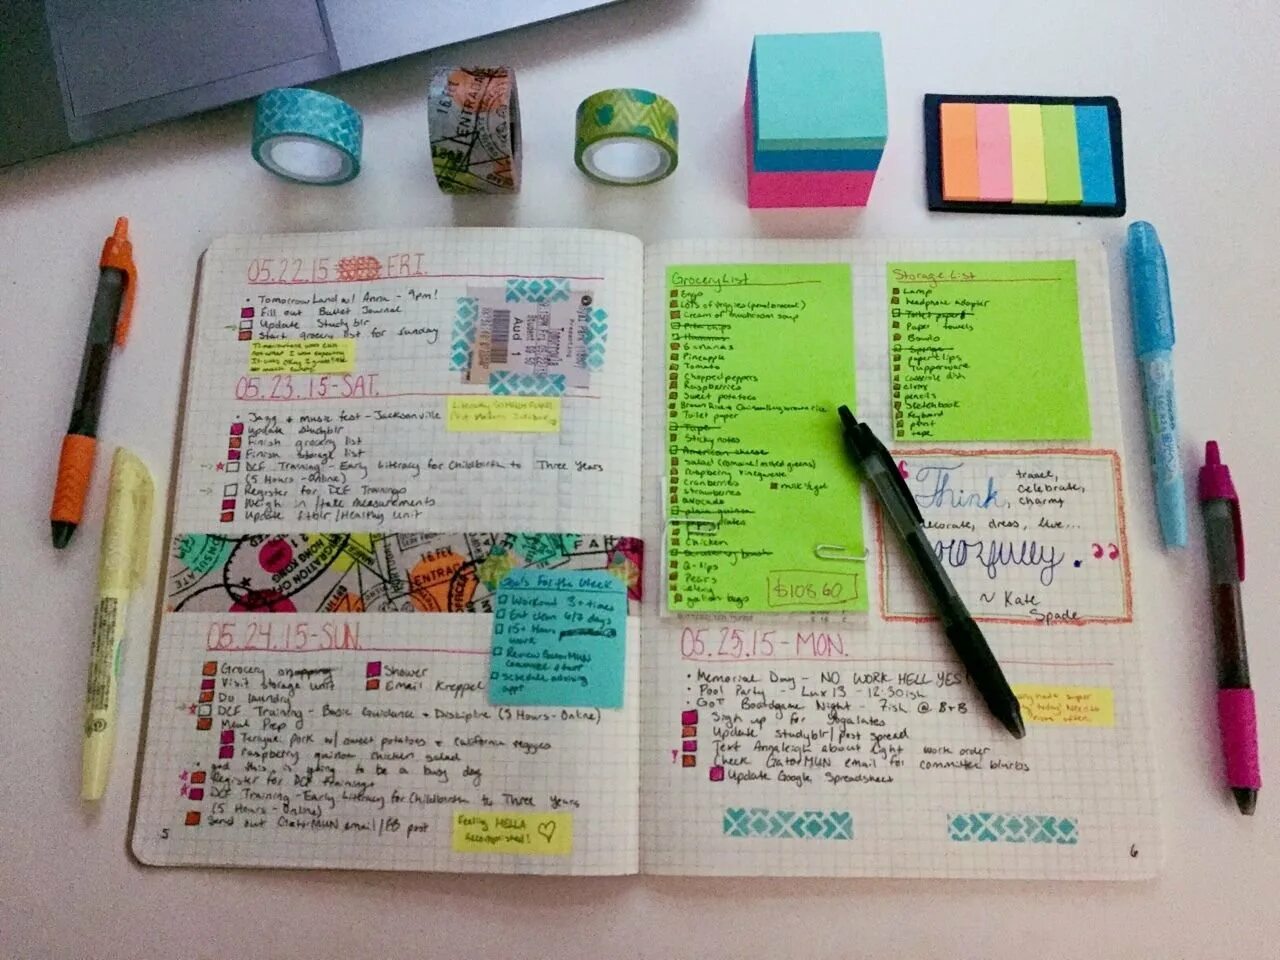 05.22.15 FRI.
• TomorrowLand w/ Anna - 9pm!
Fill out Bullet Journal
Update Studyblr
Start grocery list for Sunday
05.23.15-SAT.
• Jazz + music fest - Jacksonville
Update Studyblr
Finish grocery list
Finish storage list
DCF Training - Early Literacy for Childbirth to Three Years
(5 Hours - Online)
Register for DCF Trainings
Weigh in / take measurements
Update fitblr / Healthy Unit
16 FEV
ENTRADA
Goals For the Week
Workout 3+ times
Eat clean 6/7 days
15+ Hours
work
Review GatorMUN
Schedule advising
appt
05.24.15-SUN.
Grocery
Shower
Visit Storage Unit
Email Kreppel
Do laundry
DCF Training - Basic Guidance + Discipline (5 Hours - Online)
Meal Prep
Teriyaki pork w/ sweet potatoes + California veggies
Raspberry quinoa chicken salad
• and this is going to be a busy day
Register for DCF Trainings
DCF Training - Early Literacy for Childbirth to Three Years
(5 Hours - Online)
Send out GatorMUN email/FB post
Feeling HELLA
Accomplished!
5
Grocery List
Eggs
Lots of veggies
Cream of mushroom soup
Pita chips
Hummus
Bananas
Pineapple
Tomato
Chopped peppers
Raspberries
Sweet potatoes
Toilet paper
Tape
Sticky notes
American cheese
Salad (romaine/mixed greens)
Raspberry vinegarette
Cranberries
milk/yogurt
Strawberries
avocado
plain quinoa
paper plates
Chicken
Q-tips
Pears
ziploc bags
$108.60
Storage List
Lamp
headphone adapter
Toilet paper
Paper towels
Bowls
Sponges
paperclips
Tupperware
casserole dish
pencils
Sketchbook
Keyboard
tape
Think
travel,
celebrate,
charm,
decorate, dress, live...
colorfully.
~ Kate
Spade
05.25.15-MON.
• Memorial Day - NO WORK HELL YES!
• Pool Party - Lux 13 - 12:30ish
• GoT Boardgame Night - 7ish @ B+B
Sign up for yogalates
Update studyblr/post spread
Text Angaleigh about light work order
Check GatorMUN email for committee blurbs
Update Google Spreadsheet
6